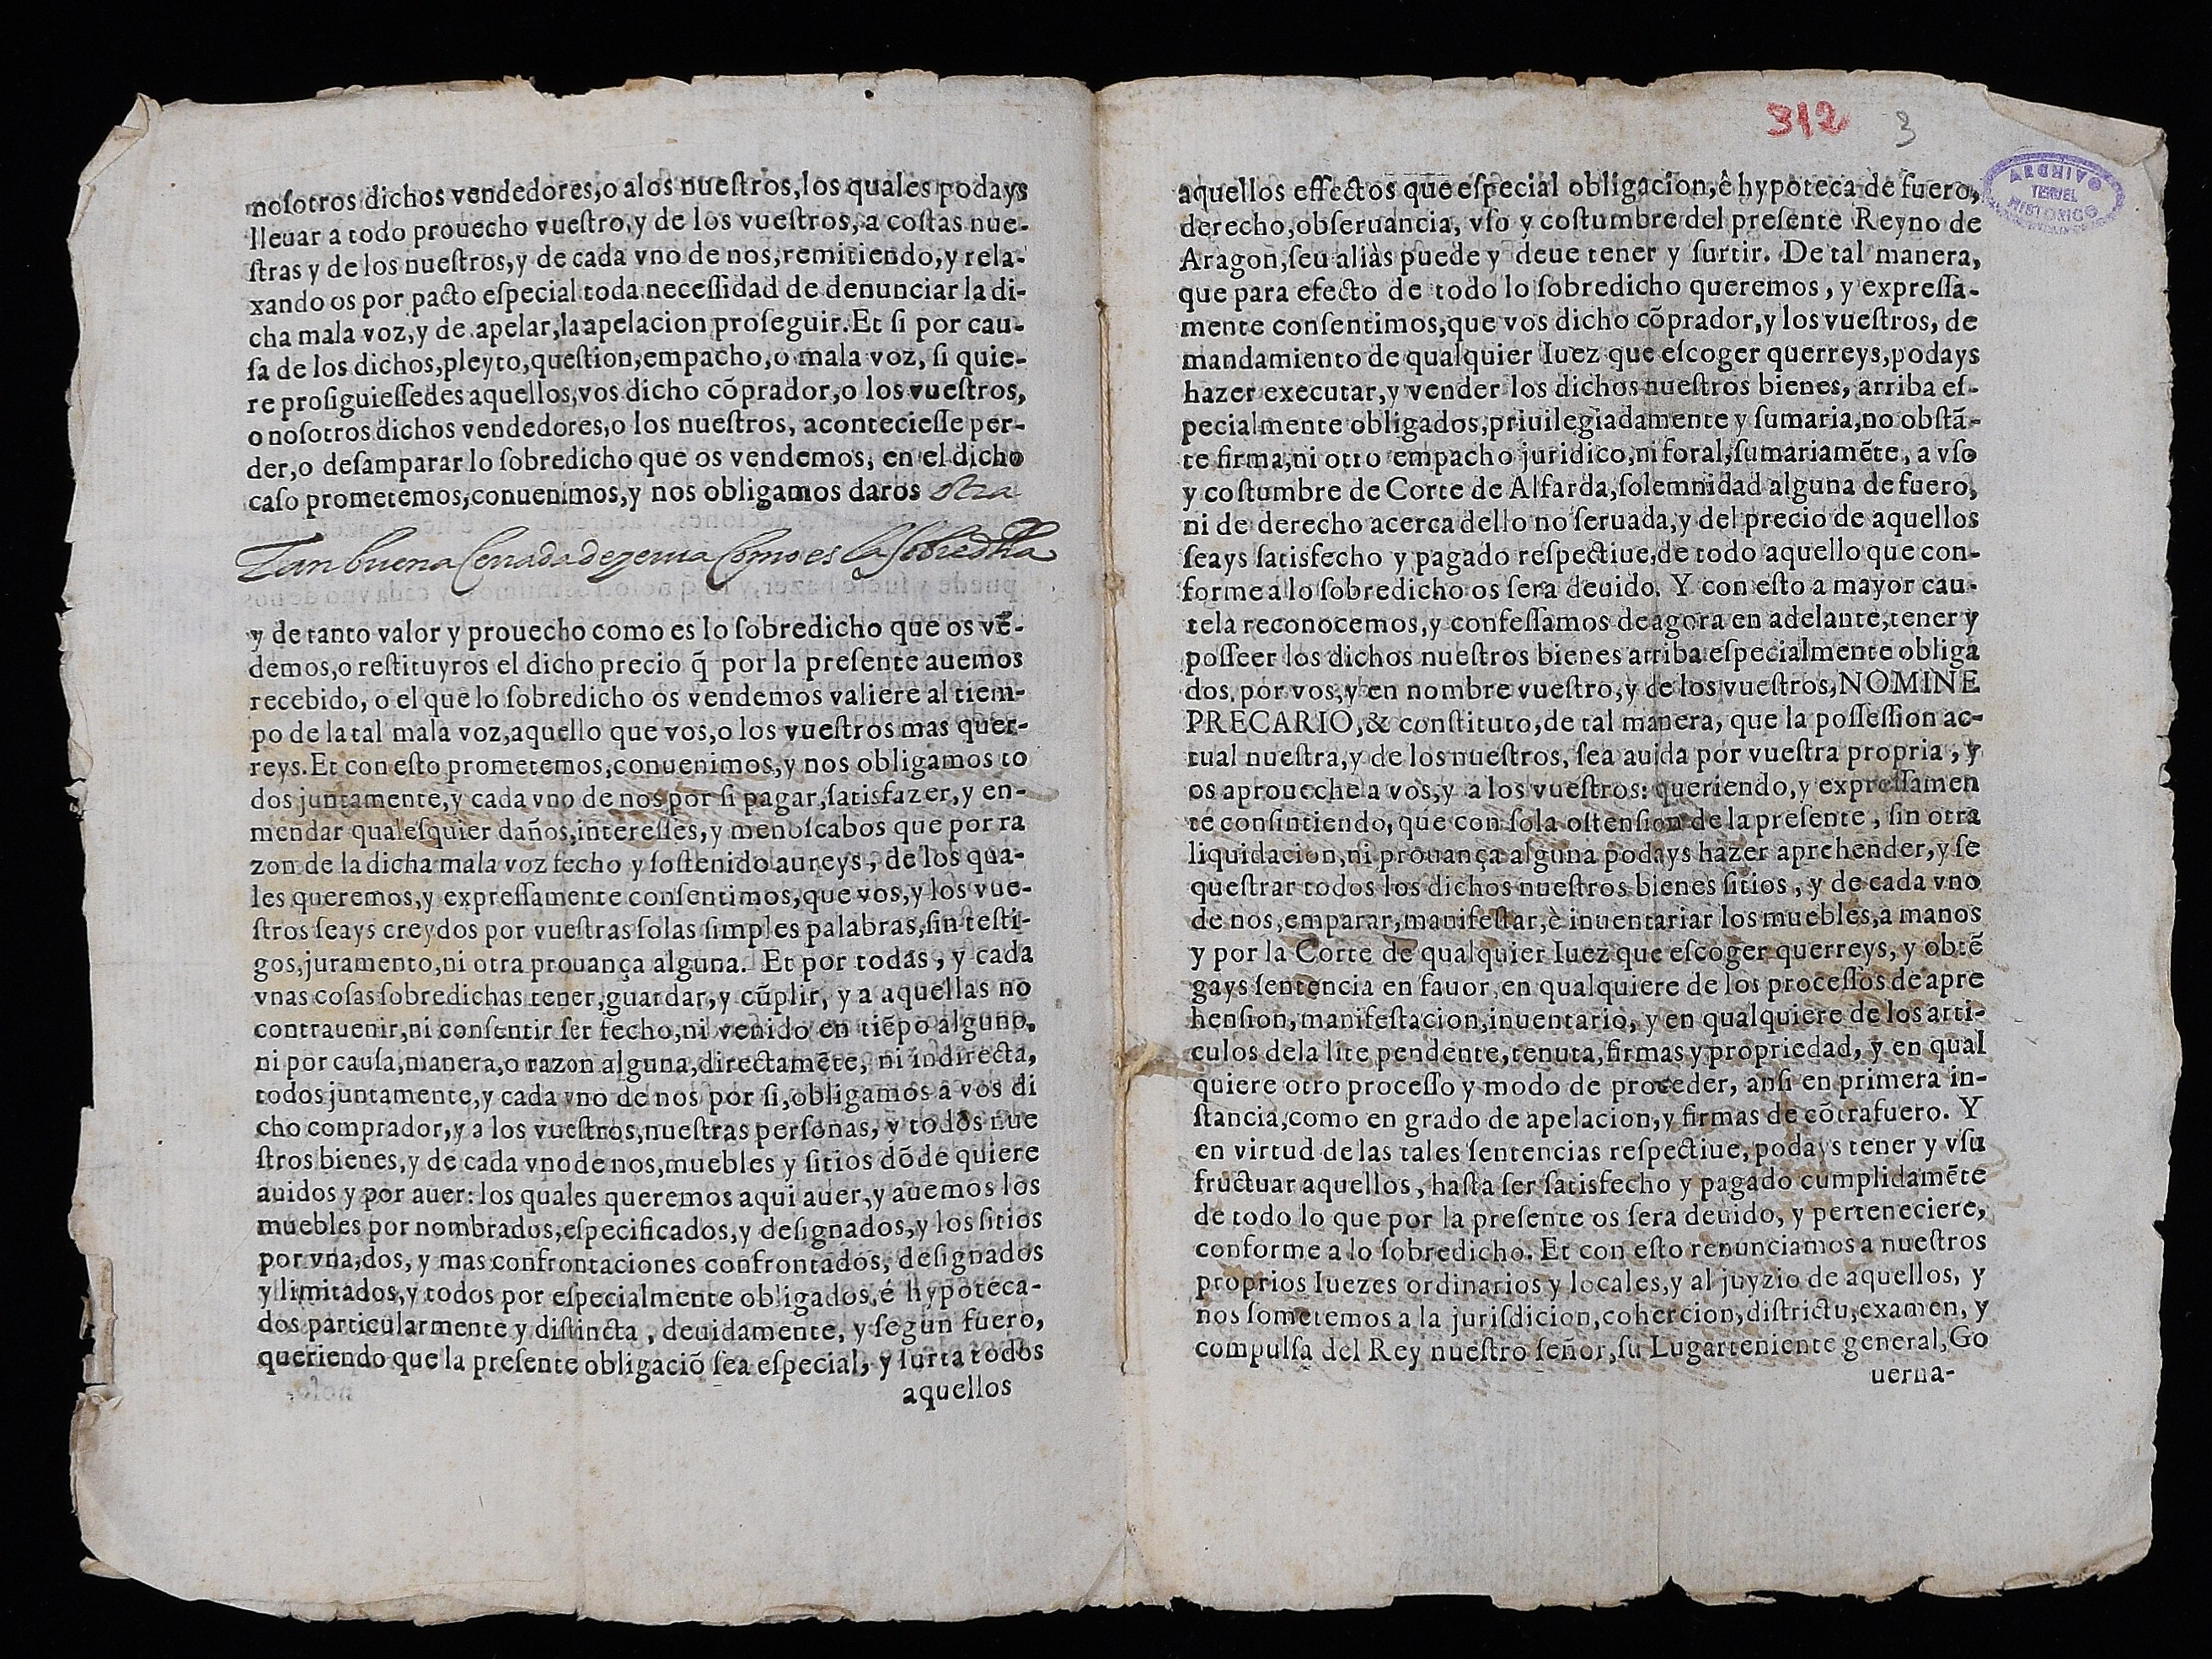 noſotros dichos vendedores,o alos nueſtros,los quales podays
lleuar a todo prouecho vueſtro,y de los vueſtros, a coſtas nue-
ſtras y de los nueſtros,y de cada vno de nos,remitiendo,y rela-
xando os por pacto eſpecial toda neceſſidad de denunciar la di-
cha mala voz,y de apelar,la apelacion proſeguir. Et ſi por cau-
ſa de los dichos,pleyto,queſtion,empacho,o mala voz, ſi quie-
re proſiguieſſedes aquellos,vos dicho cõprador,o los vueſtros,
o noſotros dichos vendedores,o los nueſtros, acontecieſſe per-
der,o deſamparar lo ſobredicho que os vendemos, en el dicho
caſo prometemos,conuenimos,y nos obligamos daros otra
Tan buena Cerrada de yerua Como es la Sobredha
y de tanto valor y prouecho como es lo ſobredicho que os vẽ-
demos,o reſtituyros el dicho precio q̃ por la preſente auemos
recebido, o el que lo ſobredicho os vendemos valiere al tiem-
po de la tal mala voz,aquello que vos,o los vueſtros mas quer-
reys. Et con eſto prometemos,conuenimos,y nos obligamos to
dos juntamente,y cada vno de nos por ſi pagar,ſatisfazer,y en-
mendar qualeſquier daños,intereſſes,y menoſcabos que por ra
zon de la dicha mala voz fecho y ſoſtenido aureys, de los qua-
les queremos,y expreſſamente conſentimos,que vos,y los vue-
ſtros ſeays creydos por vueſtras ſolas ſimples palabras,ſin teſti-
gos,juramento,ni otra prouança alguna. Et por todas, y cada
vnas coſas ſobredichas tener,guardar,y cũplir, y a aquellas no
contrauenir,ni conſentir ſer fecho,ni venido en tiẽpo alguno,
ni por cauſa,manera,o razon alguna,directamẽte, ni indirecta,
todos juntamente,y cada vno de nos por ſi,obligamos a vos di
cho comprador,y a los vueſtros,nueſtras perſonas, y todos nue
ſtros bienes,y de cada vno de nos,muebles y ſitios dõde quiere
auidos y por auer: los quales queremos aqui auer,y auemos los
muebles por nombrados,eſpecificados,y deſignados,y los ſitios
por vna,dos, y mas confrontaciones confrontados, deſignados
y limitados,y todos por eſpecialmente obligados,é hypoteca-
dos particularmente y diſtincta, deuidamente, y ſegun fuero,
queriendo que la preſente obligaciõ ſea eſpecial, y ſurta todos
aquellos
312 3
TERUEL
HISTORICO
aquellos effectos que eſpecial obligacion,ê hypoteca de fuero,
derecho,obſeruancia, vſo y coſtumbre del preſente Reyno de
Aragon,ſeu aliàs puede y deue tener y ſurtir. De tal manera,
que para efecto de todo lo ſobredicho queremos, y expreſſa-
mente conſentimos,que vos dicho cõprador,y los vueſtros, de
mandamiento de qualquier Iuez que eſcoger querreys,podays
hazer executar,y vender los dichos nueſtros bienes, arriba eſ-
pecialmente obligados,priuilegiadamente y ſumaria,no obſtã-
te firma,ni otro empacho juridico,ni foral,ſumariamẽte, a vſo
y coſtumbre de Corte de Alfarda,ſolemnidad alguna de fuero,
ni de derecho acerca dello no ſeruada,y del precio de aquellos
ſeays ſatisfecho y pagado reſpectiue,de todo aquello que con-
forme a lo ſobredicho os ſera deuido. Y con eſto a mayor cau-
tela reconocemos,y confeſſamos de agora en adelante,tener y
poſſeer los dichos nueſtros bienes arriba eſpecialmente obliga
dos, por vos,y en nombre vueſtro,y de los vueſtros,NOMINE
PRECARIO,& conſtituto,de tal manera, que la poſſeſſion ac-
tual nueſtra,y de los nueſtros, ſea auida por vueſtra propria, y
os aproueche a vos,y a los vueſtros: queriendo,y expreſſamen
te conſintiendo, que con ſola oſtenſion de la preſente, ſin otra
liquidacion,ni prouança alguna podays hazer aprehender,y ſe
queſtrar todos los dichos nueſtros bienes ſitios, y de cada vno
de nos,emparar,manifeſtar,è inuentariar los muebles,a manos
y por la Corte de qualquier Iuez que eſcoger querreys, y obtẽ
gays ſentencia en fauor,en qualquiere de los proceſſos de apre
henſion,manifeſtacion,inuentario, y en qualquiere de los arti-
culos dela lite pendente,tenuta,firmas y propriedad, y en qual
quiere otro proceſſo y modo de proceder, anſi en primera in-
ſtancia,como en grado de apelacion,y firmas de cõtrafuero. Y
en virtud de las tales ſentencias reſpectiue, podays tener y vſu
fructuar aquellos, haſta ſer ſatisfecho y pagado cumplidamẽte
de todo lo que por la preſente os ſera deuido, y perteneciere,
conforme a lo ſobredicho. Et con eſto renunciamos a nueſtros
proprios Iuezes ordinarios y locales,y al juyzio de aquellos, y
nos ſometemos a la juriſdicion,cohercion,diſtrictu,examen, y
compulſa del Rey nueſtro ſeñor,ſu Lugarteniente general,Go
uerna-